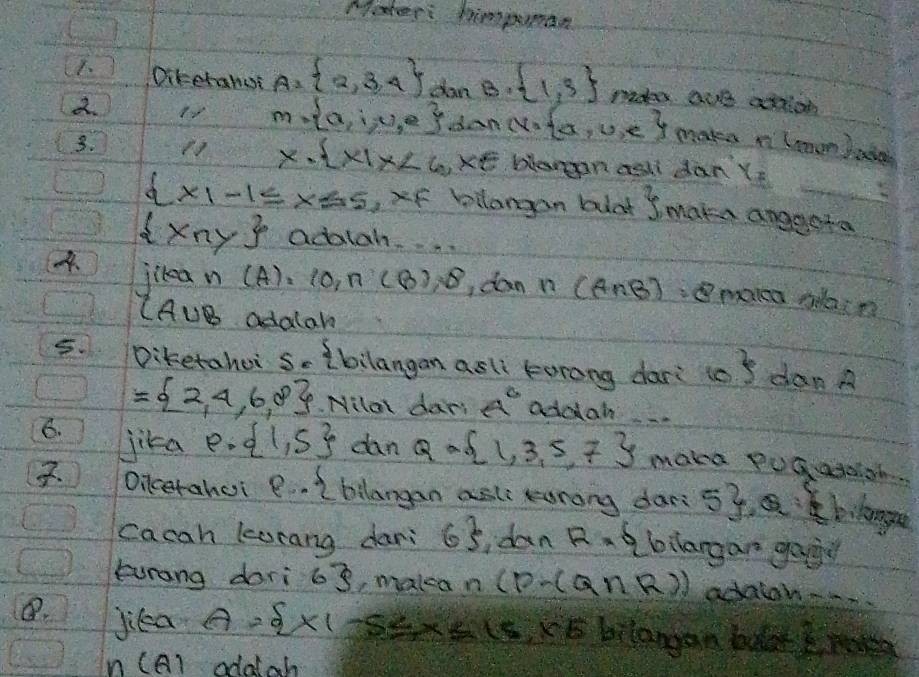 Materi himpunan
1. Diketahui A = {2,3,4} dan B = {1,3} maka AUB adalah
2. " m = {a, i, u, e} dan N = {a, u, e} maka n (mnn) adalah
3. " X = {x | x < 6, x ∈ bilangan asli dan Y =
{x | -1 ≤ x ≤ 5, x ∈ bilangan bulat} maka anggota
{x n y} adalah....
4. jika n (A) = 10, n (B) = 8, dan n (AnB) = maka nilai n
(AUB adalah
5. Diketahui S = {bilangan asli kurang dari 10} dan A
= {2, 4, 6, 8}. Nilai dari A^c adalah ...
6. jika P = {1, 5} dan Q = {1, 3, 5, 7} maka PUQ adalah...
7. Diketahui P = {bilangan asli kurang dari 5}, Q = {bilangan
cacah kurang dari 6}, dan R = {bilangan ganjil
kurang dari 6}, maka n (P-(QnR)) adalah....
8. Jika A = {x | -5 ≤ x ≤ 15, x ∈ bilangan bulat}, maka
n (A) adalah